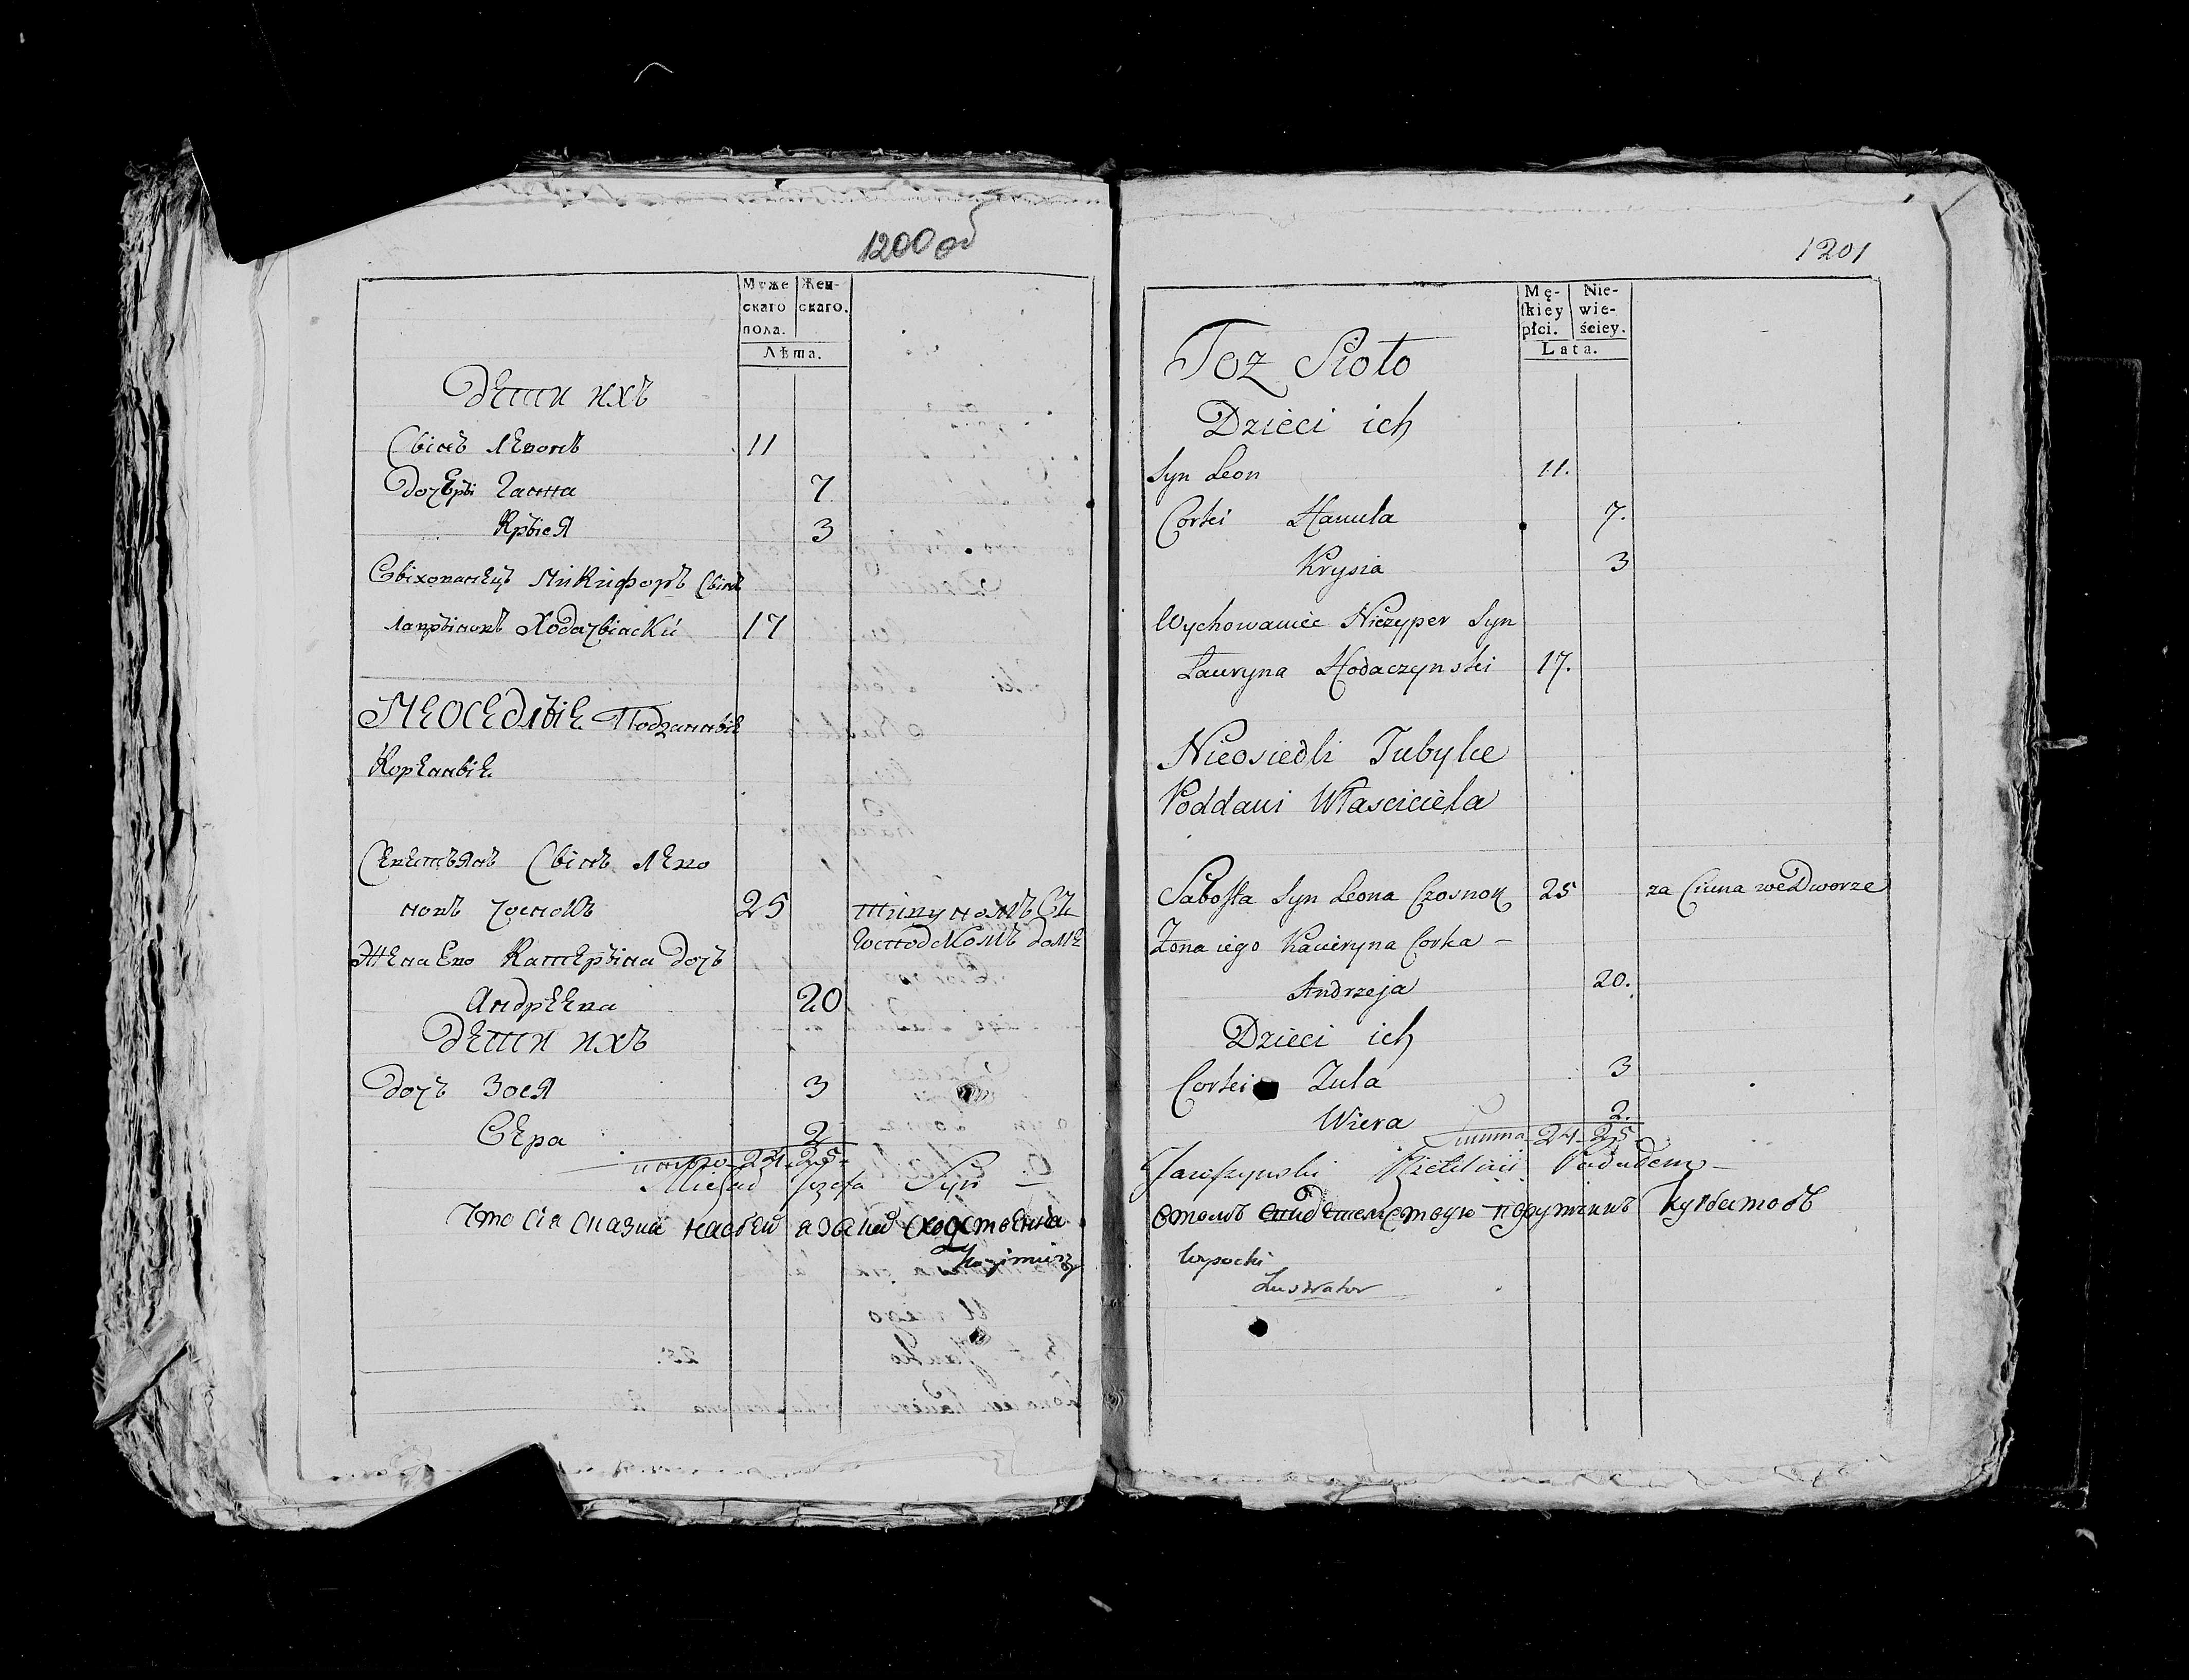 1200 об
Муже
скаго
пола.
Жен-
скаго.
Лѣта.
дети ихъ
Сынъ Левонъ 11
Дочери Ганна 7
Крыся 3
Выхованецъ Никифоръ Сынъ
Лавриновъ Ходачынски 17
Неоседлые Подданные
Коренные
Севестьянъ Сынъ Лево
новъ Чоснокъ 25 тивуномъ въ
господскомъ доме
Жена Ево Катерына дочъ
Андреева 20
дети ихъ
Дочъ Зося 3
Вера 2
итого 24 25
Michał Jozefa Syn
Что сія сказка
Kazimierz
1201
Mę-
ſkiey
płci.
Nie-
wie-
ściey.
Lata.
Toż Sioło
Dzieci ich
Syn Leon 11.
Corki Hanula 7.
Krysia 3
Wychowaniec Niczyper Syn
Lauryna Hodaczynski 17.
Nieosiedli Tubylce
Poddani Własciciela
Sabosta Syn Leona Czosnok 25 za Ciuna we Dworze
Zona iego Kacieryna Corka -
Andrzeja 20.
Dzieci ich
Corki Zula 3
Wiera 2.
Summa 24 25
поручикъ Кулбатовъ
Wysocki
Lustrator